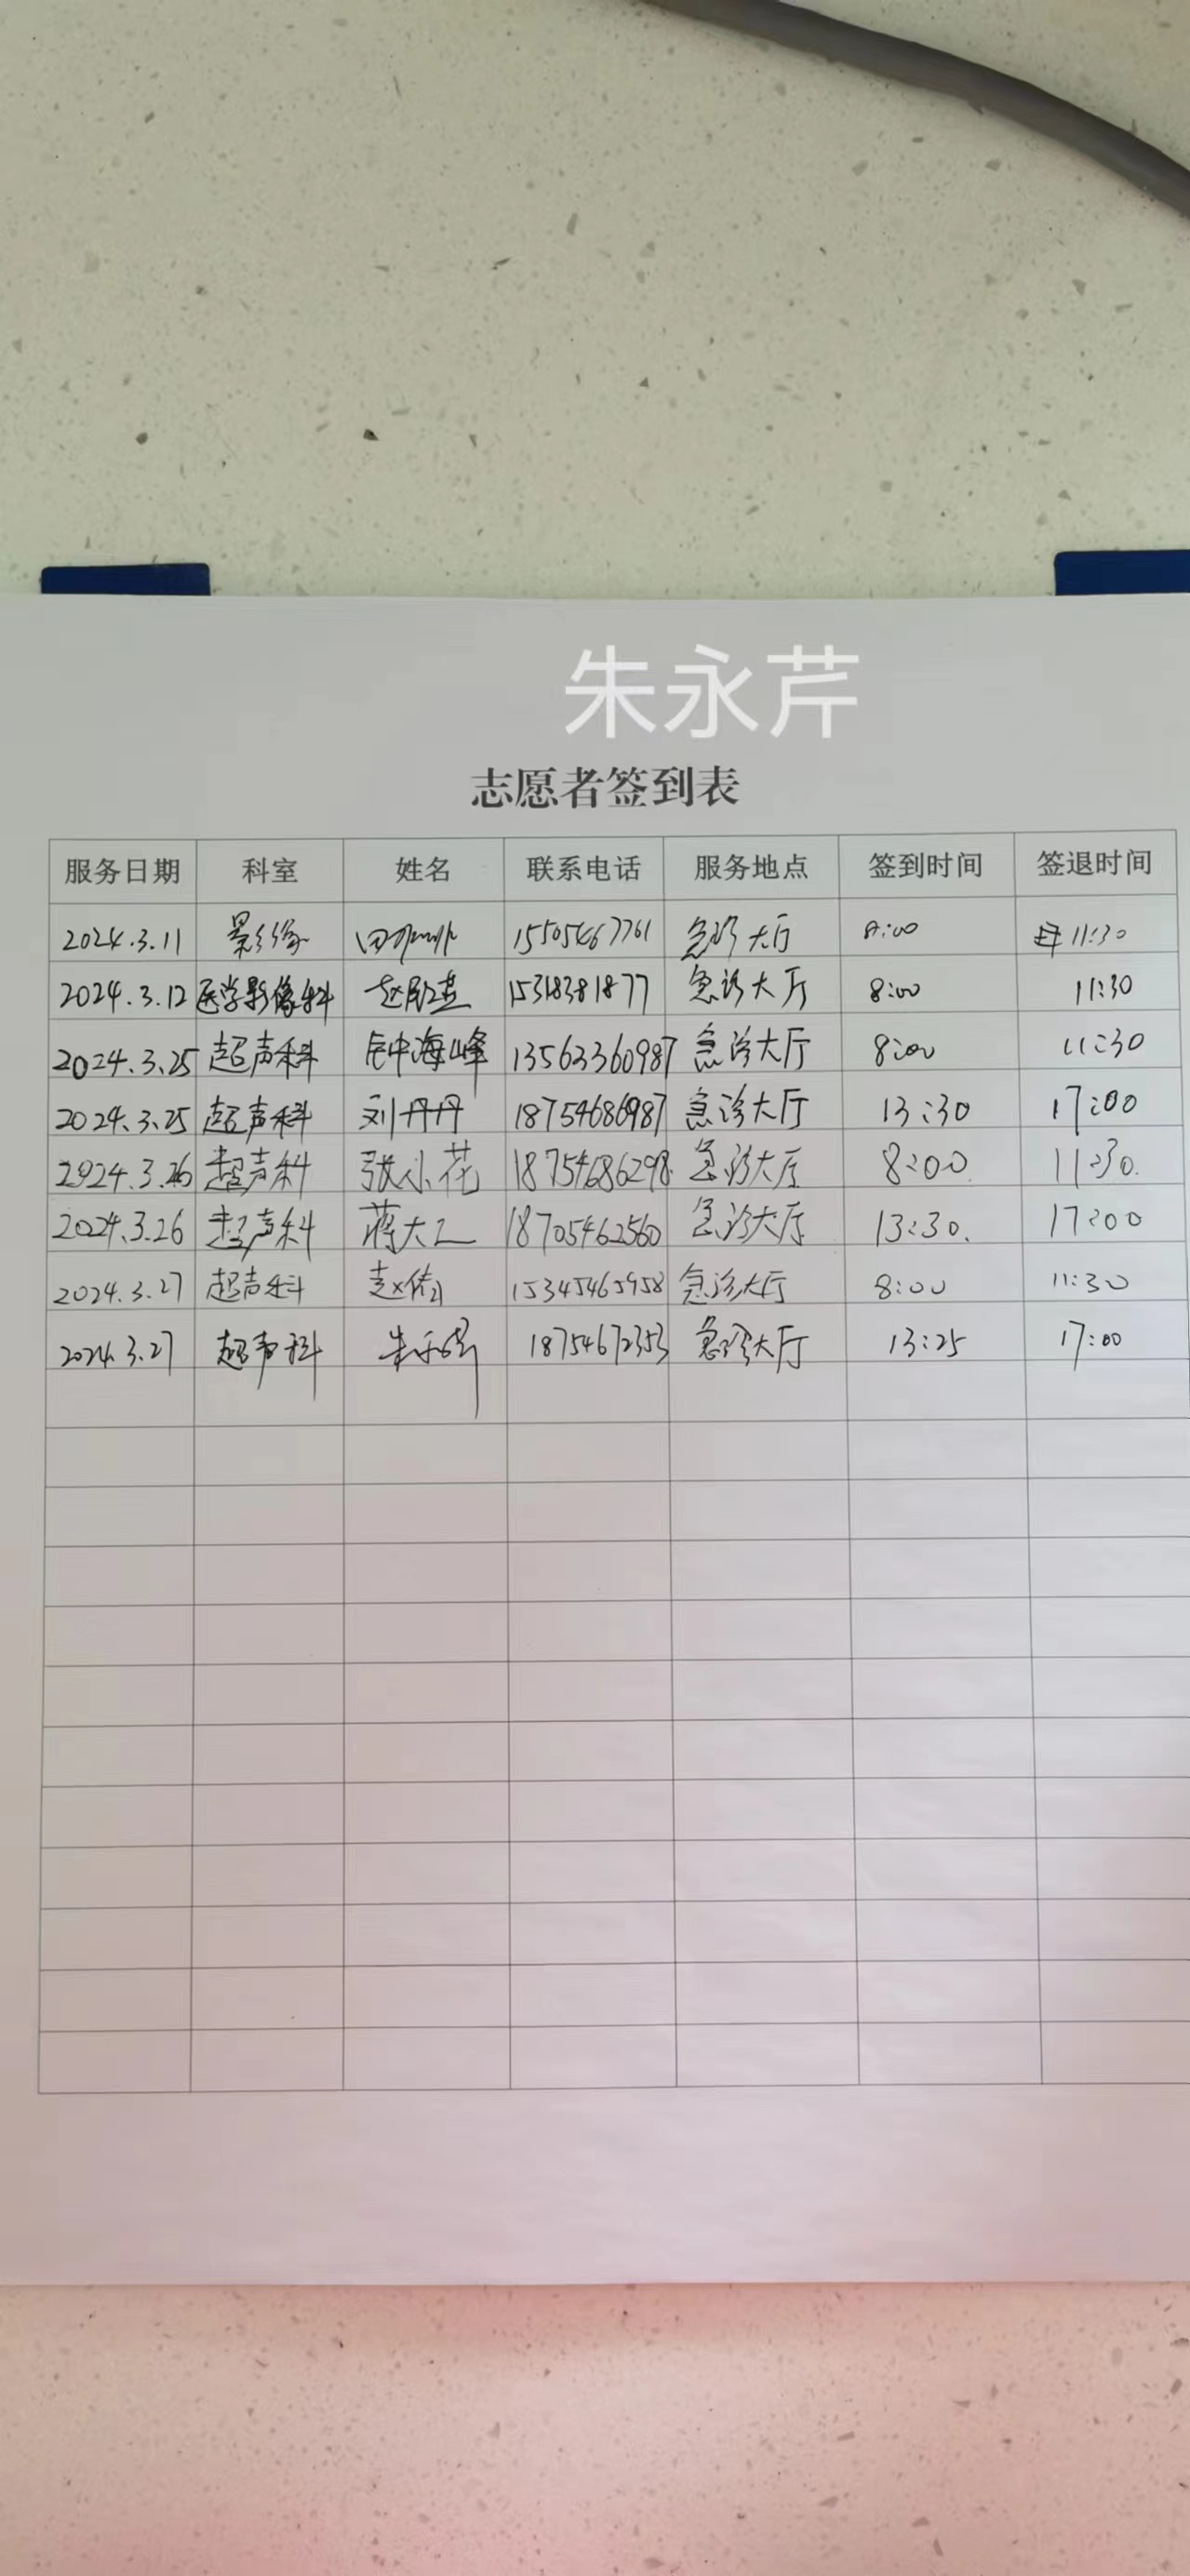 朱永芹
志愿者签到表
服务日期 科室 姓名 联系电话 服务地点 签到时间 签退时间
2024.3.11 影像 田 15505467761 急诊大厅 8:00 11:30
2024.3.12 医学影像科 赵 15318381877 急诊大厅 8:00 11:30
2024.3.25 超声科 海峰 13563360987 急诊大厅 8:00 11:30
2024.3.25 超声科 刘丹丹 18754686987 急诊大厅 13:30 17:00
2024.3.26 超声科 张小花 18754686298 急诊大厅 8:00 11:30
2024.3.26 超声科 蒋大 18705462560 急诊大厅 13:30 17:00
2024.3.27 超声科 赵倩 15345465958 急诊大厅 8:00 11:30
2024.3.27 超声科 朱 18754672353 急诊大厅 13:25 17:00